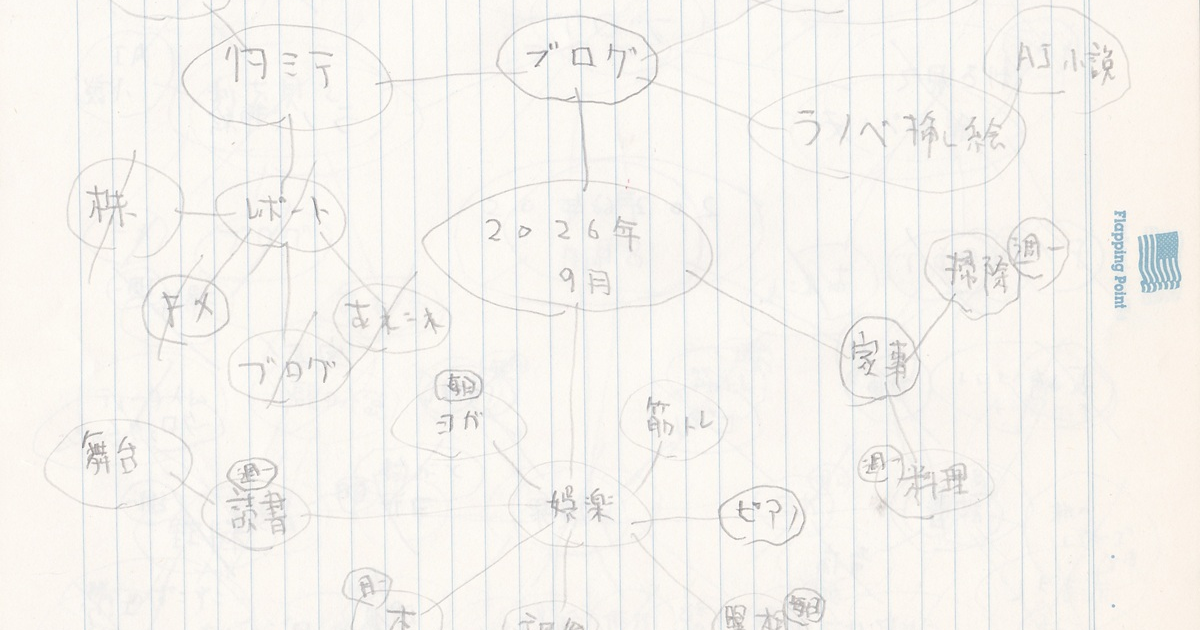 ブログ
AI小説
ラノベ挿し絵
株
レポート
2026年
9月
掃除
週一
キメ
ブログ
家事
毎日
ヨガ
筋トレ
舞台
週一
読書
娯楽
ピアノ
週一
料理
月一
本
毎日
Flapping Point